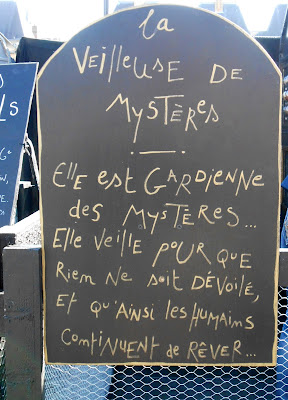 la
VEiLLEUSE DE
MYSTÈRES
Elle est GARDiENNE
des MYSTÈRES...
Elle VEille POUR QUE
RiEN NE soit DÉVOILÉ,
Et qu'AiNSi lES HUMAiNS
CONTiNUENT de RÊVER...